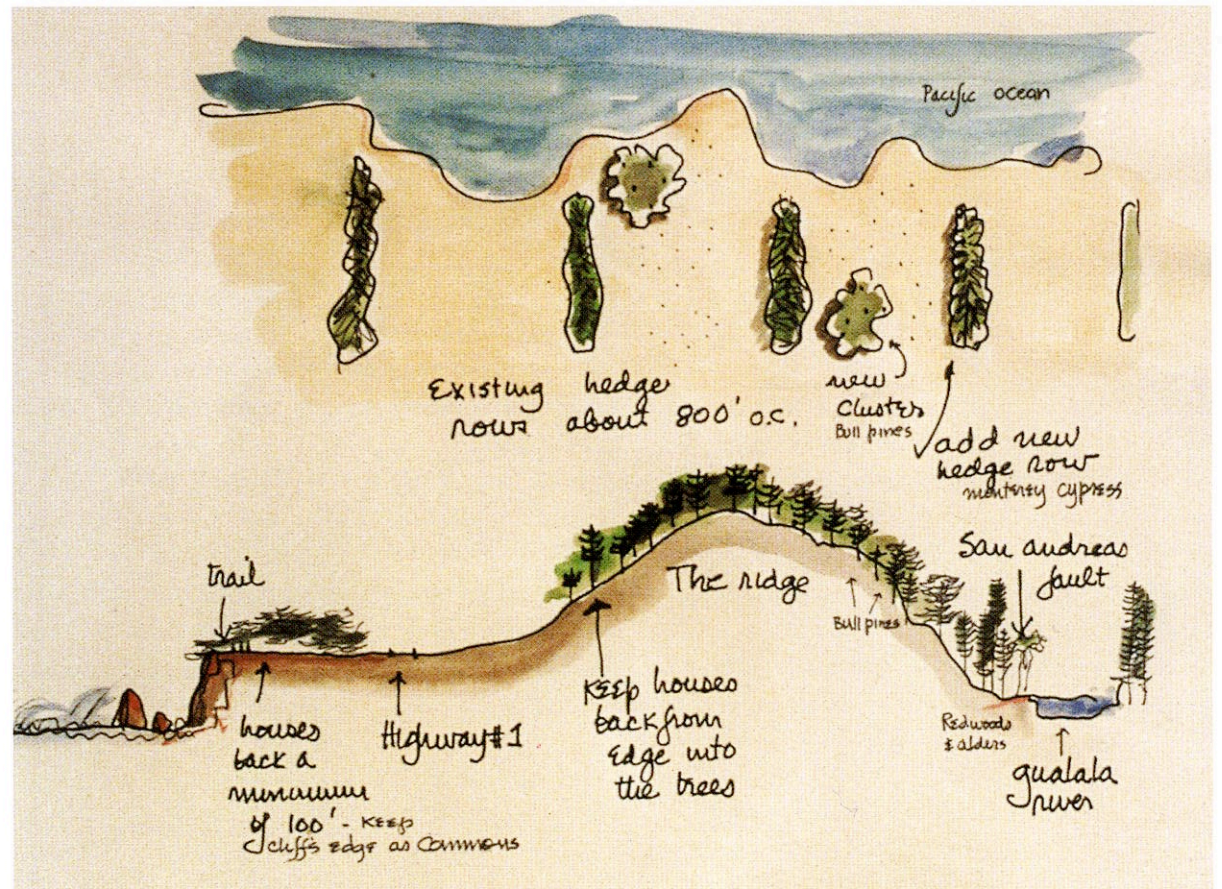 Pacific ocean
Existing hedge
rows about 800' o.c.
new
cluster
Bull pines
add new
hedge row
monterey cypress
trail
The ridge
Bull pines
San andreas
fault
houses
back a
minimum
of 100' - KEEP
cliffs edge as Commons
Highway #1
KEEP houses
back from
Edge into
the trees
Redwoods
& alders
gualala
river